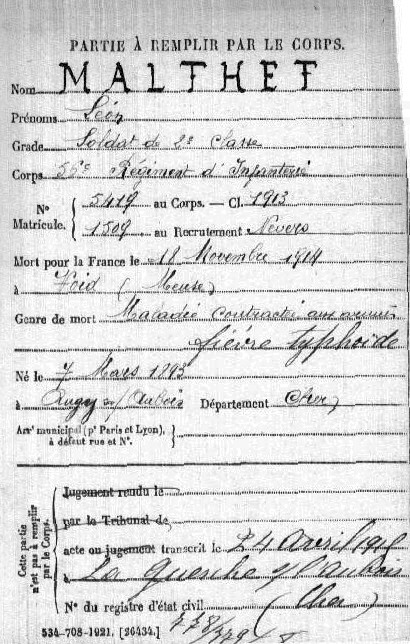 PARTIE À REMPLIR PAR LE CORPS.
Nom MALTHET
Prénoms Léon
Grade Soldat de 2e Classe
Corps 56e Régiment d'Infanterie
N° Matricule. { 5419 au Corps. — Cl. 1913
1509 au Recrutement Nevers
Mort pour la France le 18 Novembre 1914
à Foid (Meuse)
Genre de mort Maladie contractée aux armées
fièvre typhoïde
Né le 7 Mars 1893
à Augy s/ Aubois Département Cher
Arrt municipal (pr Paris et Lyon), à défaut rue et N°.
Cette partie n'est pas à remplir par le Corps.
Jugement rendu le
par le Tribunal de
acte ou jugement transcrit le 24 avril 1915
à La Guerche s/l'aubois
N° du registre d'état civil (Cher)
534-708-1921. [26434.]